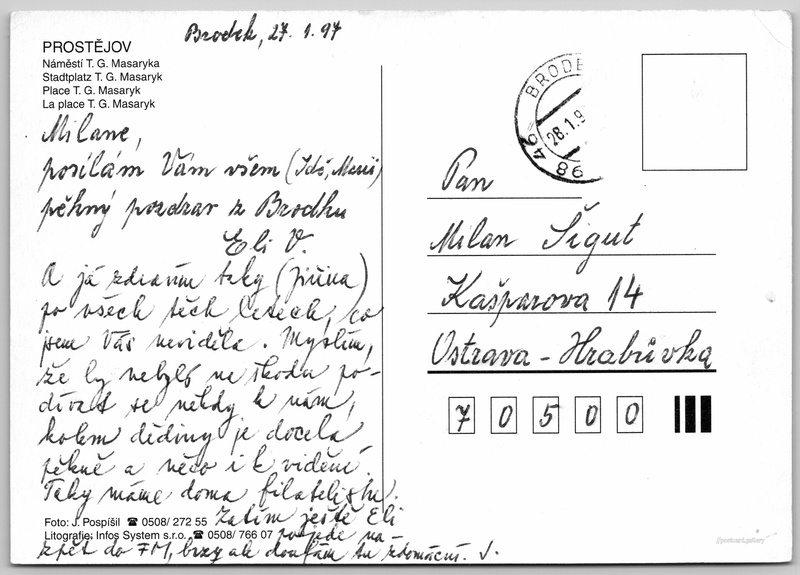 Brodek, 27. 1. 97
PROSTĚJOV
Náměstí T. G. Masaryka
Stadtplatz T. G. Masaryk
Place T. G. Masaryk
La place T. G. Masaryk
Milane,
posílám Vám všem (
pěkný pozdrav z Brodku
Eli V.
A já zdravím taky (Jiřina)
po všech těch letech, co
jsem Vás neviděla. Myslím,
že by nebylo na škodu po-
dívat se někdy k nám,
kolem dědiny je docela
pěkně a něco i k vidění.
Taky máme doma filatelistu.
Zatím ještě Eli
pojede na-
zpět do FM, brzy ale doufám tu zdomácní. J.
Foto: J. Pospíšil ☎ 0508/ 272 55
Litografie: Infos System s.r.o. ☎ 0508/ 766 07
BRODE
28.1.9
Pan
Milan Šigut
Kašparova 14
Ostrava - Hrabůvka
7 0 5 0 0